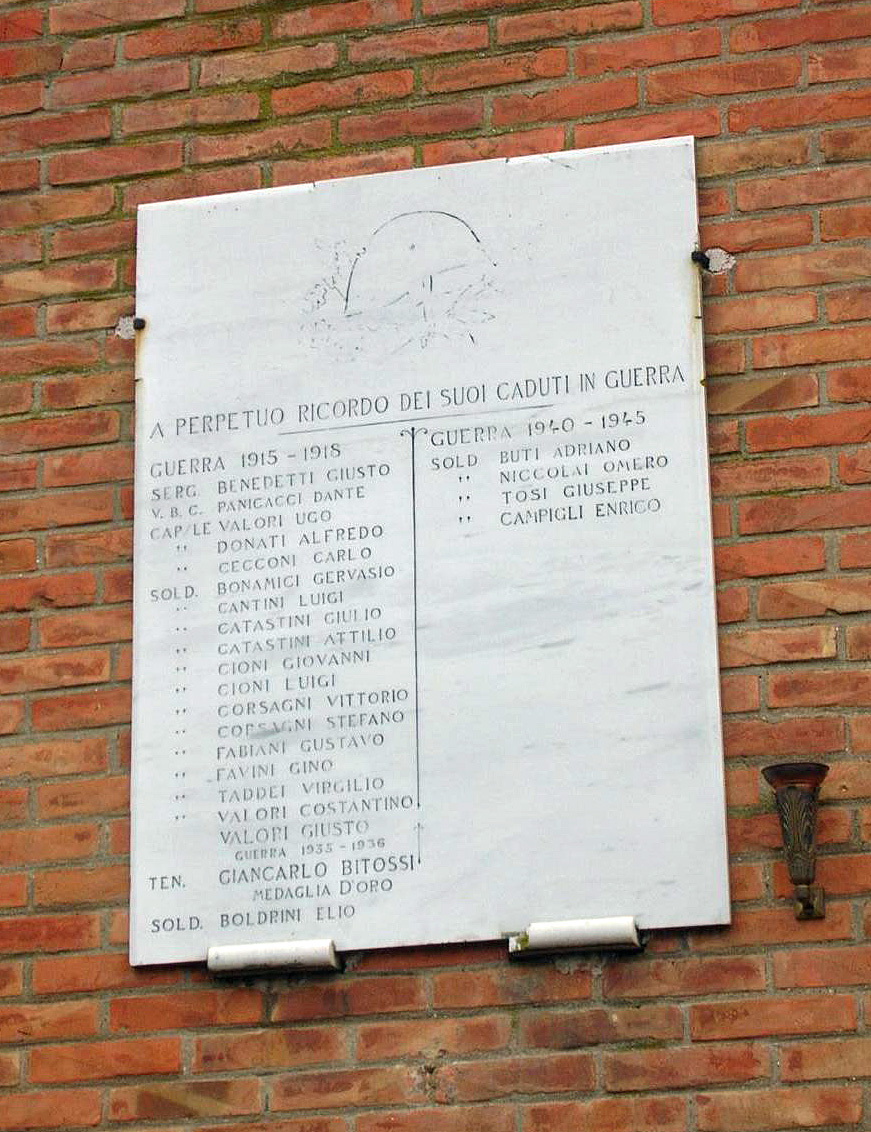 A PERPETUO RICORDO DEI SUOI CADUTI IN GUERRA
GUERRA 1915-1918
SERG. BENEDETTI GIUSTO
V.B.C. PANICACCI DANTE
CAP/LE VALORI UGO
" DONATI ALFREDO
" CECCONI CARLO
SOLD. BONAMICI GERVASIO
" CANTINI LUIGI
" CATASTINI GIULIO
" CATASTINI ATTILIO
" CIONI GIOVANNI
" CIONI LUIGI
" CORSAGNI VITTORIO
" CORSAGNI STEFANO
" FABIANI GUSTAVO
" FAVINI GINO
" TADDEI VIRGILIO
" VALORI COSTANTINO
VALORI GIUSTO
GUERRA 1935-1936
TEN. GIANCARLO BITOSSI
MEDAGLIA D'ORO
SOLD. BOLDRINI ELIO
GUERRA 1940-1945
SOLD BUTI ADRIANO
" NICCOLAI OMERO
" TOSI GIUSEPPE
" CAMPIGLI ENRICO